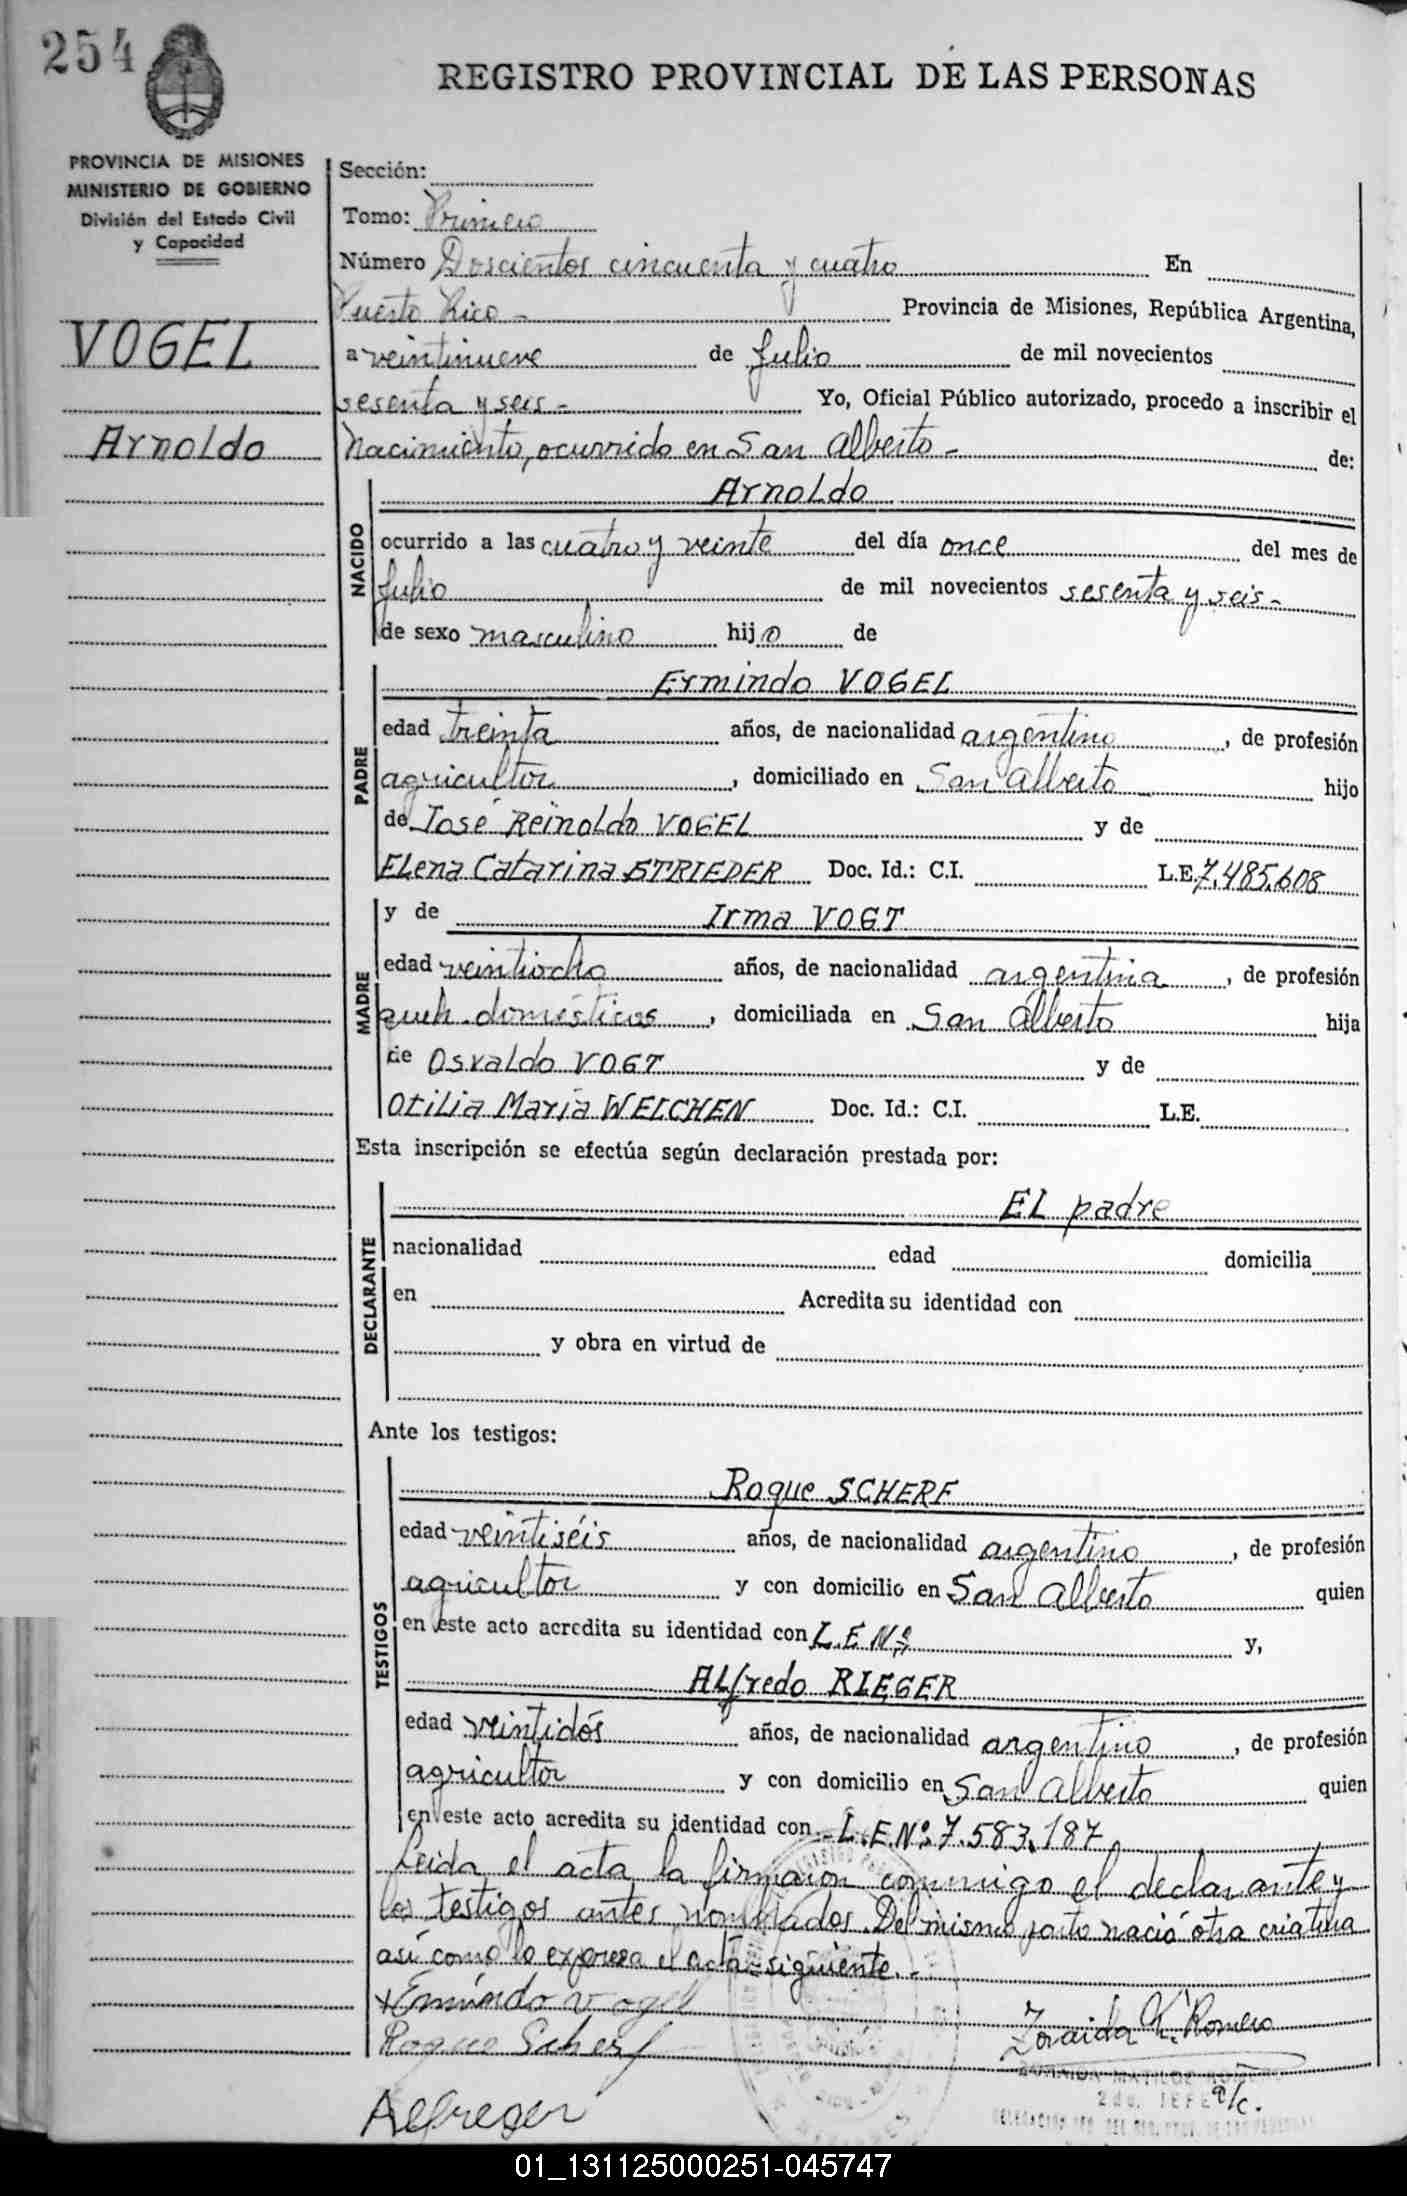 254
REGISTRO PROVINCIAL DE LAS PERSONAS
PROVINCIA DE MISIONES
MINISTERIO DE GOBIERNO
División del Estado Civil
y Capacidad
VOGEL
Arnoldo
Sección:
Tomo: Primero
Número Doscientos cincuenta y cuatro En
Puerto Rico - Provincia de Misiones, República Argentina,
a veintinueve de Julio de mil novecientos
sesenta y seis - Yo, Oficial Público autorizado, procedo a inscribir el
Nacimiento, ocurrido en San Alberto - de:
NACIDO
Arnoldo
ocurrido a las cuatro y veinte del día once del mes de
Julio de mil novecientos sesenta y seis -
de sexo masculino hijo de
PADRE
Ermindo VOGEL
edad treinta años, de nacionalidad argentino, de profesión
agricultor, domiciliado en San Alberto - hijo
de José Reinoldo VOGEL y de
Elena Catarina STRIEDER Doc. Id.: C.I. L.E. 7.485.608
MADRE
y de Irma VOGT
edad veintiocho años, de nacionalidad argentina, de profesión
queh. domésticos, domiciliada en San Alberto hija
de Osvaldo VOGT y de
Otilia María WELCHEN Doc. Id.: C.I. L.E.
Esta inscripción se efectúa según declaración prestada por:
DECLARANTE
El padre
nacionalidad edad domicilia
en Acredita su identidad con
y obra en virtud de
Ante los testigos:
TESTIGOS
Roque SCHERF
edad veintiséis años, de nacionalidad argentino, de profesión
agricultor y con domicilio en San Alberto quien
en este acto acredita su identidad con L.E Nº y,
Alfredo RIEGER
edad veintidós años, de nacionalidad argentino, de profesión
agricultor y con domicilio en San Alberto quien
en este acto acredita su identidad con L.E.Nº. 7.583.187
Leída el acta, la firmaron conmigo el declarante y
los testigos antes nombrados. Del mismo parto nació otra criatura
así como lo expresa el acta siguiente. -
Ermindo Vogel
Roque Scherf
Zoraida M. Romero
2da. JEFE a/c.
01_131125000251-045747